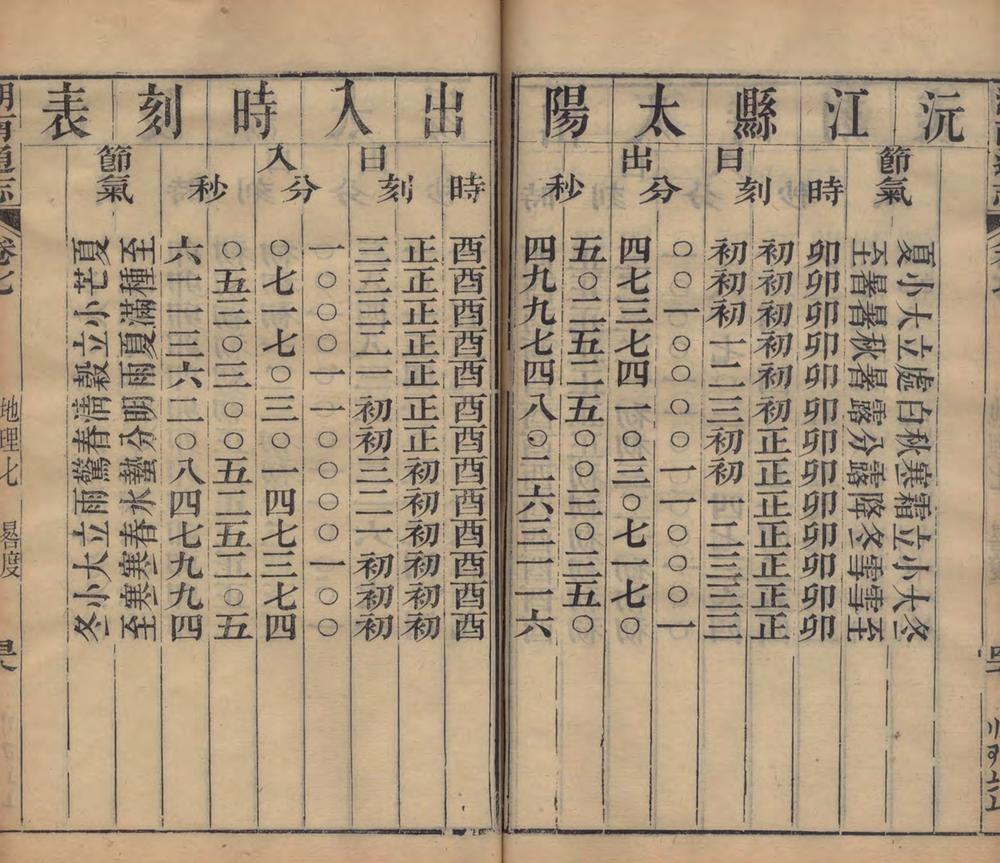 沅江縣太陽
節氣
時
日出
刻
分
秒
夏小大立處白秋寒霜立小大冬
至暑暑秋暑露分露降冬雪雪至
卯卯卯卯卯卯卯卯卯卯卯卯卯
初初初初初初正正正正正正正
初初初一二三初初一二三三三
〇〇一〇〇〇〇一一〇〇〇一
四七三七四一〇三〇七一七〇
五〇二五二五〇〇三〇三五〇
四九九七四八〇二六三一一六
出入時刻表
時
日入
刻
分
秒
節氣
酉酉酉酉酉酉酉酉酉酉酉酉酉
正正正正正正正初初初初初初
三三三二一初初三二一初初初
一〇〇〇一一〇〇〇〇一〇〇
〇七一七〇三〇一四七三七四
〇五三〇三〇〇五二五二〇五
六一一三六二〇八四七九九四
至種滿夏雨明分蟄水春寒寒至
夏芒小立穀清春驚雨立大小冬
湖南通志
卷七
地理七
晷度